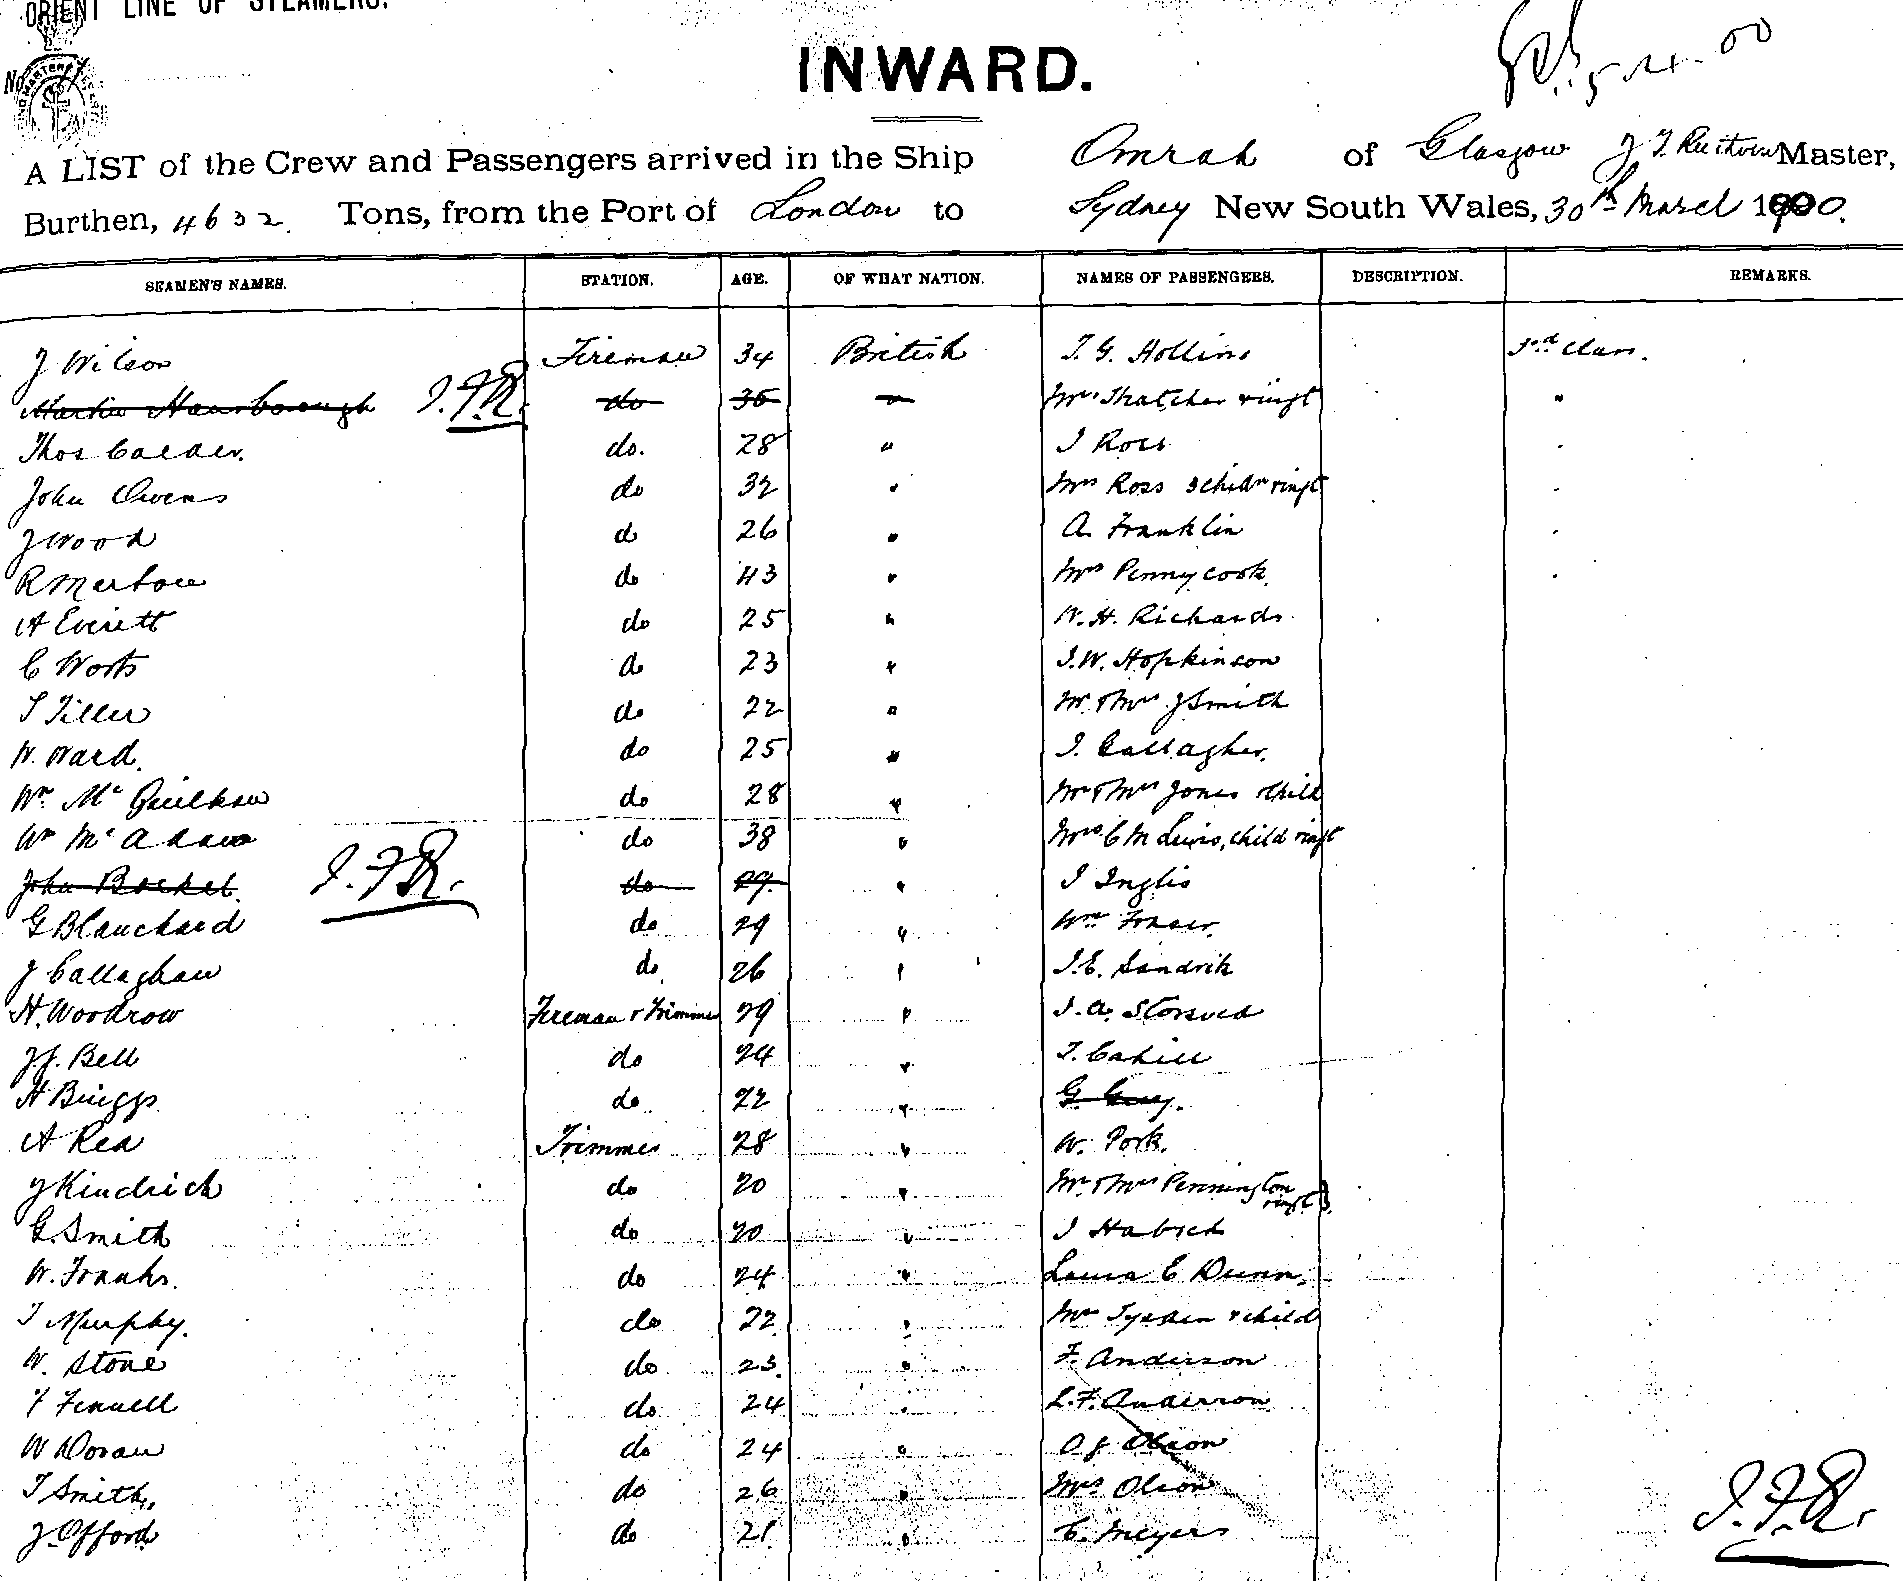 ORIENT LINE OF STEAMERS.
No
INWARD.
5.4.00
A LIST of the Crew and Passengers arrived in the Ship Omrah of Glasgow J F Ruthven Master,
Burthen, 4632. Tons, from the Port of London to Sydney New South Wales, 30th March 1900.
SEAMEN'S NAMES. STATION. AGE. OF WHAT NATION. NAMES OF PASSENGERS. DESCRIPTION. REMARKS.
J Wilson Fireman 34 British T. G. Hollins 3rd Class.
Martin Hansborough J.F.R. do 35 " Mrs Thatcher & inft "
Thos Calder. do. 28 " J Ross "
John Owens do 32 " Mrs Ross 3 childn & inft "
J Wood d 26 " A. Franklin "
R Merton do 43 " Mrs Pennycook. "
A Everett do 25 " W. H. Richards
C Worts do 23 " J. W. Hopkinson
T Tiller do 22 " Mr & Mrs J Smith
W. Ward. do 25 " J. Gallagher.
Wm Mc do 28 " Mr & Mrs Jones & child
Wm Mc Adam do 38 " Mrs C M Lewis, child & inft
John J.F.R. do 29 " J Inglis
G Blanchard do 29 " Wm Fraser.
J Callaghan do 26 " J. E. Sandrik
H. Woodrow Fireman & Trimmer 29 " J. A. Storsved
J. J. Bell do 24 " T. Cahill
H Briggs do 22 " G. Guy.
A Rea Trimmer 28 " W. Pork.
J Kindrich do 20 " Mr & Mrs Pennington & inft
G. Smith do 20 " J Habich
W. Franks. do 24 " Laura C Dunn.
T Murphy. do 22 " Mrs & child
W. Stone do 23. " F. Anderson
T Fennell do 24 " L. F. Anderson
W Doran do 24 " O J Olson
T Smith, do 26 " Mrs Olson
J. Offord do 21 " C. Meyers
J.F.R.